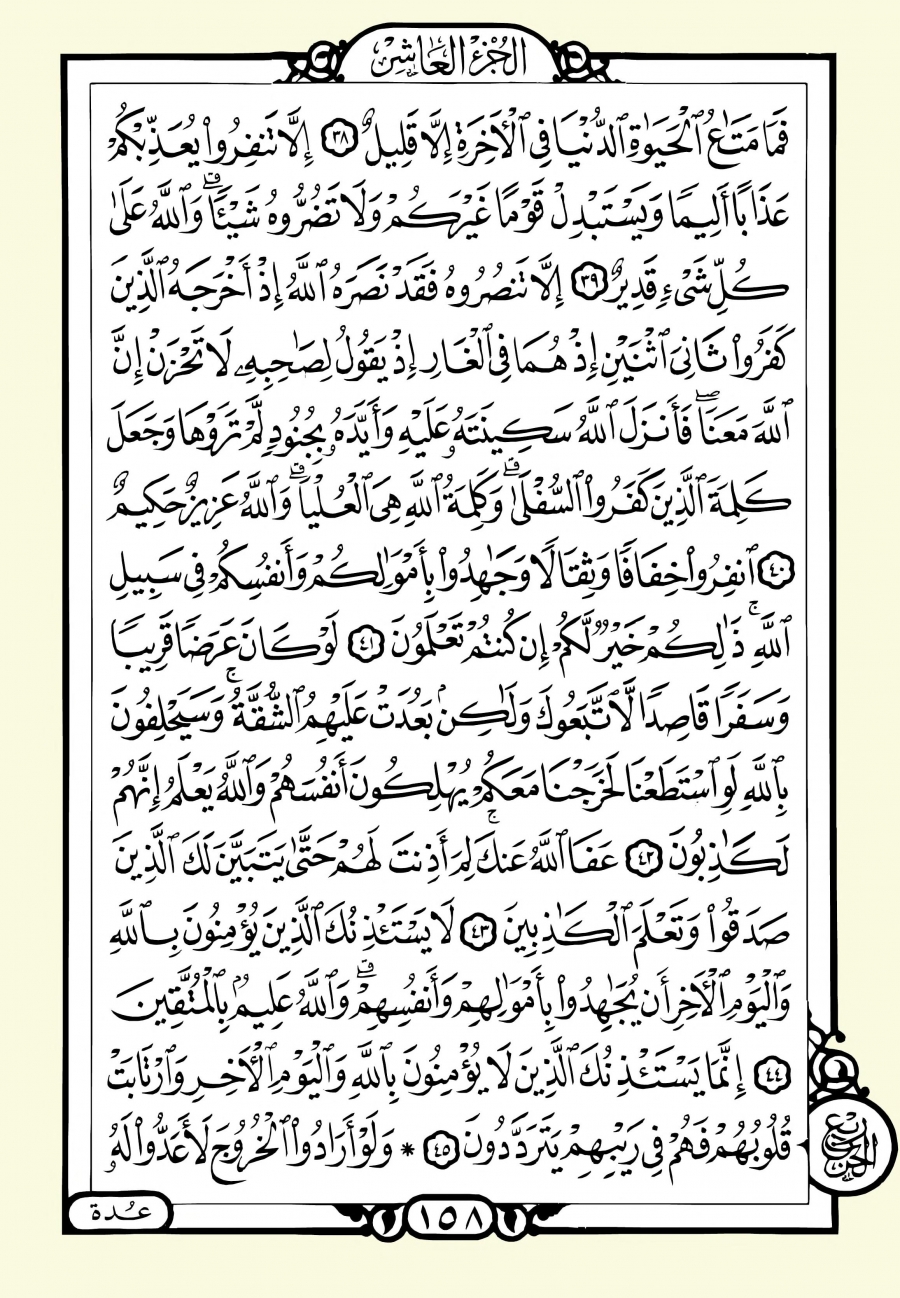 الجُزْءُ العَاشِرُ
فَمَا مَتَٰعُ ٱلْحَيَوٰةِ ٱلدُّنْيَا فِى ٱلْأَخِرَةِ إِلَّا قَلِيلٌ ٣٨ إِلَّا تَنفِرُوا۟ يُعَذِّبْكُمْ
عَذَابًا أَلِيمًا وَيَسْتَبْدِلْ قَوْمًا غَيْرَكُمْ وَلَا تَضُرُّوهُ شَيْـًٔا ۗ وَٱللَّهُ عَلَىٰ
كُلِّ شَىْءٍ قَدِيرٌ ٣٩ إِلَّا تَنصُرُوهُ فَقَدْ نَصَرَهُ ٱللَّهُ إِذْ أَخْرَجَهُ ٱلَّذِينَ
كَفَرُوا۟ ثَانِىَ ٱثْنَيْنِ إِذْ هُمَا فِى ٱلْغَارِ إِذْ يَقُولُ لِصَٰحِبِهِۦ لَا تَحْزَنْ إِنَّ
ٱللَّهَ مَعَنَا ۖ فَأَنزَلَ ٱللَّهُ سَكِينَتَهُۥ عَلَيْهِ وَأَيَّدَهُۥ بِجُنُودٍ لَّمْ تَرَوْهَا وَجَعَلَ
كَلِمَةَ ٱلَّذِينَ كَفَرُوا۟ ٱلسُّفْلَىٰ ۗ وَكَلِمَةُ ٱللَّهِ هِىَ ٱلْعُلْيَا ۗ وَٱللَّهُ عَزِيزٌ حَكِيمٌ
٤٠ ٱنفِرُوا۟ خِفَافًا وَثِقَالًا وَجَٰهِدُوا۟ بِأَمْوَٰلِكُمْ وَأَنفُسِكُمْ فِى سَبِيلِ
ٱللَّهِ ۚ ذَٰلِكُمْ خَيْرٌ لَّكُمْ إِن كُنتُمْ تَعْلَمُونَ ٤١ لَوْ كَانَ عَرَضًا قَرِيبًا
وَسَفَرًا قَاصِدًا لَّٱتَّبَعُوكَ وَلَٰكِنۢ بَعُدَتْ عَلَيْهِمُ ٱلشُّقَّةُ ۚ وَسَيَحْلِفُونَ
بِٱللَّهِ لَوِ ٱسْتَطَعْنَا لَخَرَجْنَا مَعَكُمْ يُهْلِكُونَ أَنفُسَهُمْ وَٱللَّهُ يَعْلَمُ إِنَّهُمْ
لَكَٰذِبُونَ ٤٢ عَفَا ٱللَّهُ عَنكَ ۚ لِمَ أَذِنتَ لَهُمْ حَتَّىٰ يَتَبَيَّنَ لَكَ ٱلَّذِينَ
صَدَقُوا۟ وَتَعْلَمَ ٱلْكَٰذِبِينَ ٤٣ لَا يَسْتَـْٔذِنُكَ ٱلَّذِينَ يُؤْمِنُونَ بِٱللَّهِ
وَٱلْيَوْمِ ٱلْأَخِرِ أَن يُجَٰهِدُوا۟ بِأَمْوَٰلِهِمْ وَأَنفُسِهِمْ ۗ وَٱللَّهُ عَلِيمٌۢ بِٱلْمُتَّقِينَ
٤٤ إِنَّمَا يَسْتَـْٔذِنُكَ ٱلَّذِينَ لَا يُؤْمِنُونَ بِٱللَّهِ وَٱلْيَوْمِ ٱلْأَخِرِ وَٱرْتَابَتْ
قُلُوبُهُمْ فَهُمْ فِى رَيْبِهِمْ يَتَرَدَّدُونَ ٤٥ * وَلَوْ أَرَادُوا۟ ٱلْخُرُوجَ لَأَعَدُّوا۟ لَهُۥ
ربع الحزب
١٥٨
عُدة